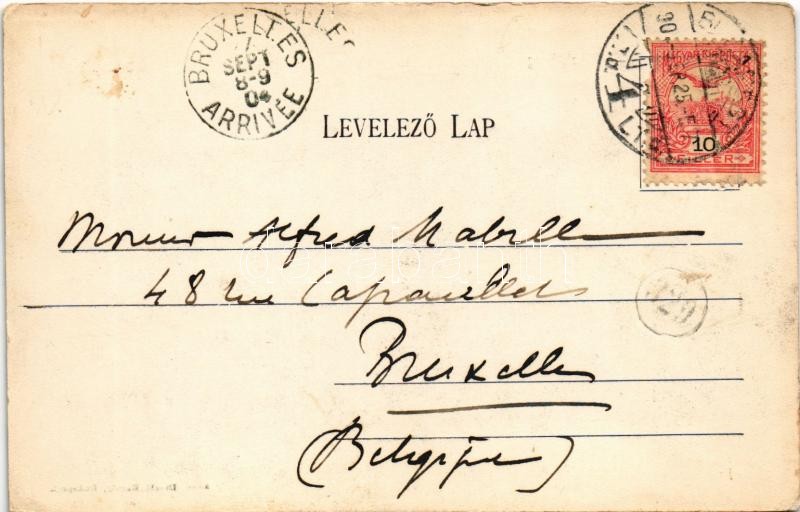 BRUXELLES
7
SEPT
8-9
04
ARRIVÉE
LEVELEZŐ LAP
MAGYAR KIR. POSTA
10
FILLÉR
Monsieur Alfred Mabille
48 rue
Bruxelles
(Belgique)